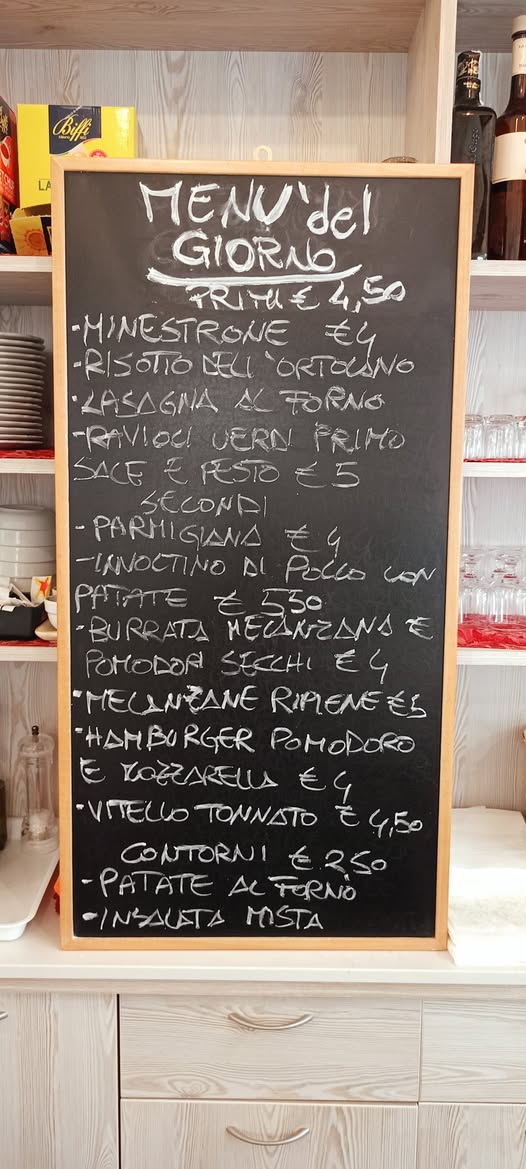 Biffi
LA
MENU' del
GIORNO
PRIMI € 4,50
-MINESTRONE €4
-RISOTTO DELL'ORTOLANO
-LASAGNA AL FORNO
-RAVIOLI VERDI PRIMO
SALE E PESTO € 5
SECONDI
-PARMIGIANA € 4
-INVOLTINO DI POLLO CON
PATATE € 5,50
-BURRATA MELANZANA E
POMODORI SECCHI € 4
-MELANZANE RIPIENE €5
-HAMBURGER POMODORO
E MOZZARELLA € 4
-VITELLO TONNATO € 4,50
CONTORNI € 2,50
-PATATE AL FORNO
-INSALATA MISTA